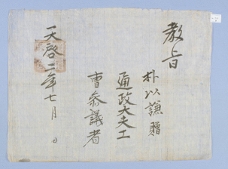 教旨
朴以謙贈
通政大夫工
曹參議者
天啓二年七月 日